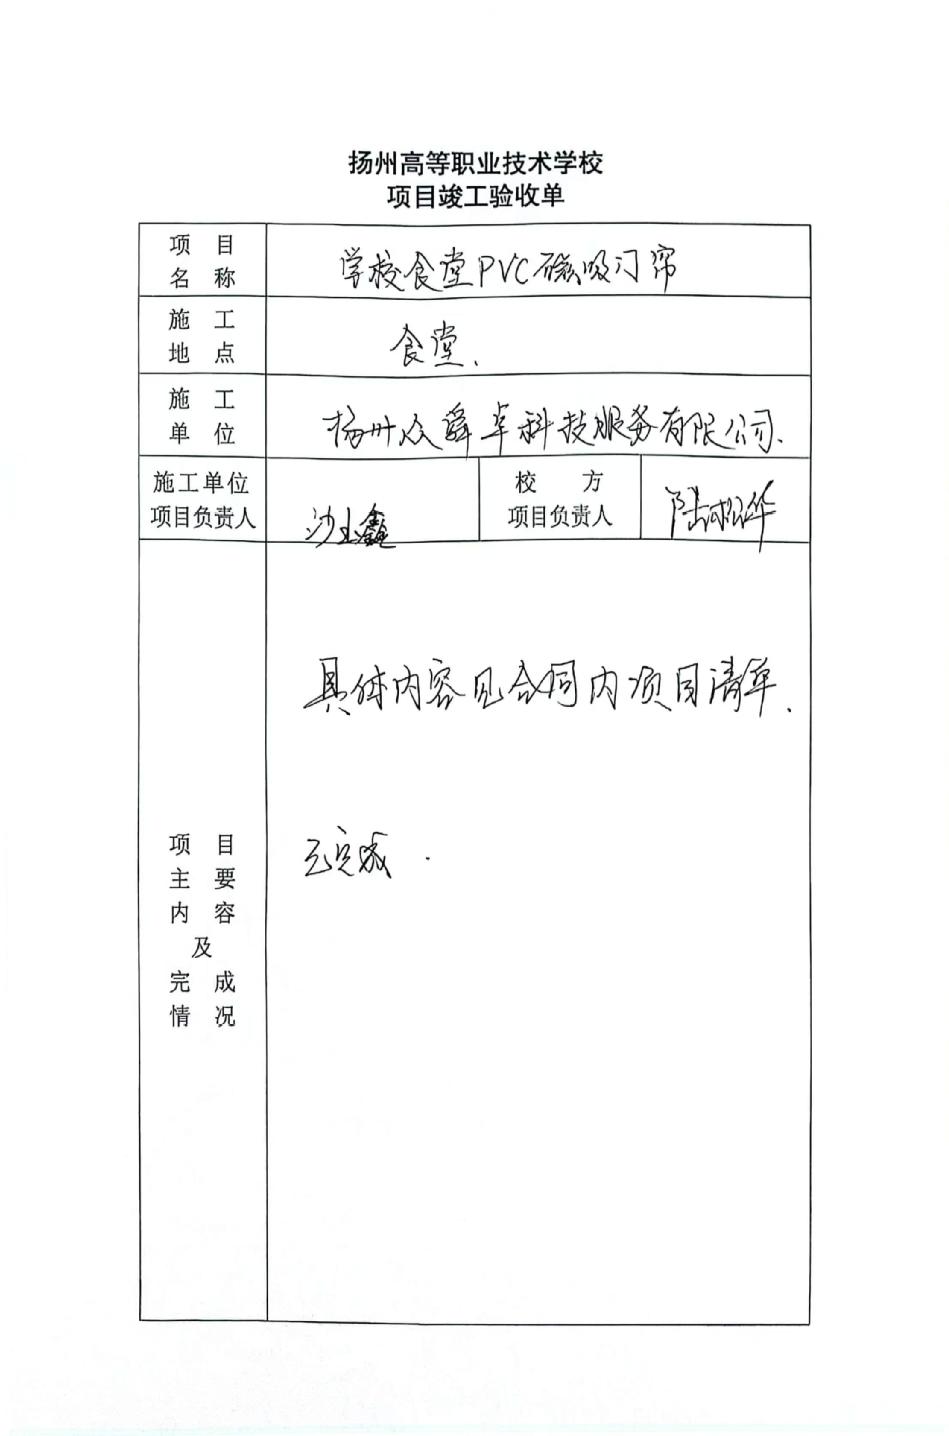 扬州高等职业技术学校
项目竣工验收单
项 目
名 称
学校食堂PVC磁吸门帘
施 工
地 点
食堂.
施 工
单 位
扬州众舜卓科技服务有限公司.
施工单位
项目负责人
沙 鑫
校 方
项目负责人
陆松华
具体内容见合同内项目清单.
已完成.
项 目
主 要
内 容
及
完 成
情 况